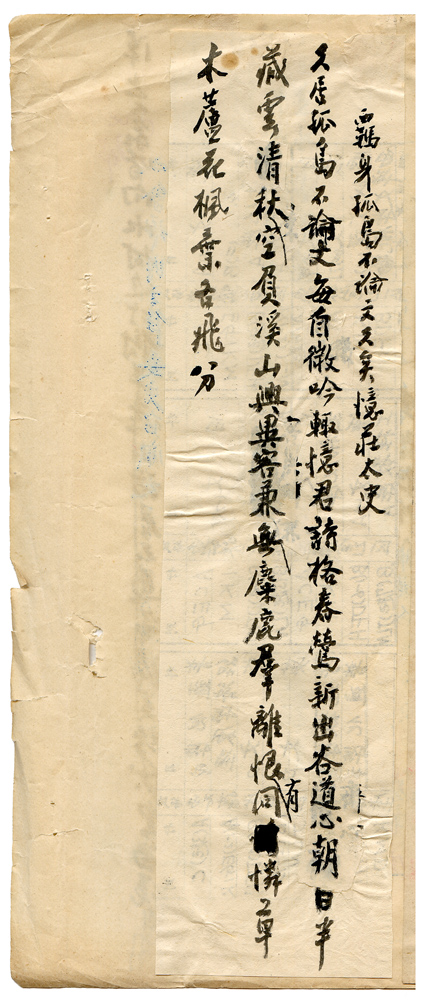 羈身孤島不論文久矣憶莊太史
久居孤島不論文每自微吟輒憶君詩格春鶯新出谷道心朝日半
藏雲清秋空負溪山興異客兼無麋鹿羣離恨同有憐草
木蘆花楓葉各飛分